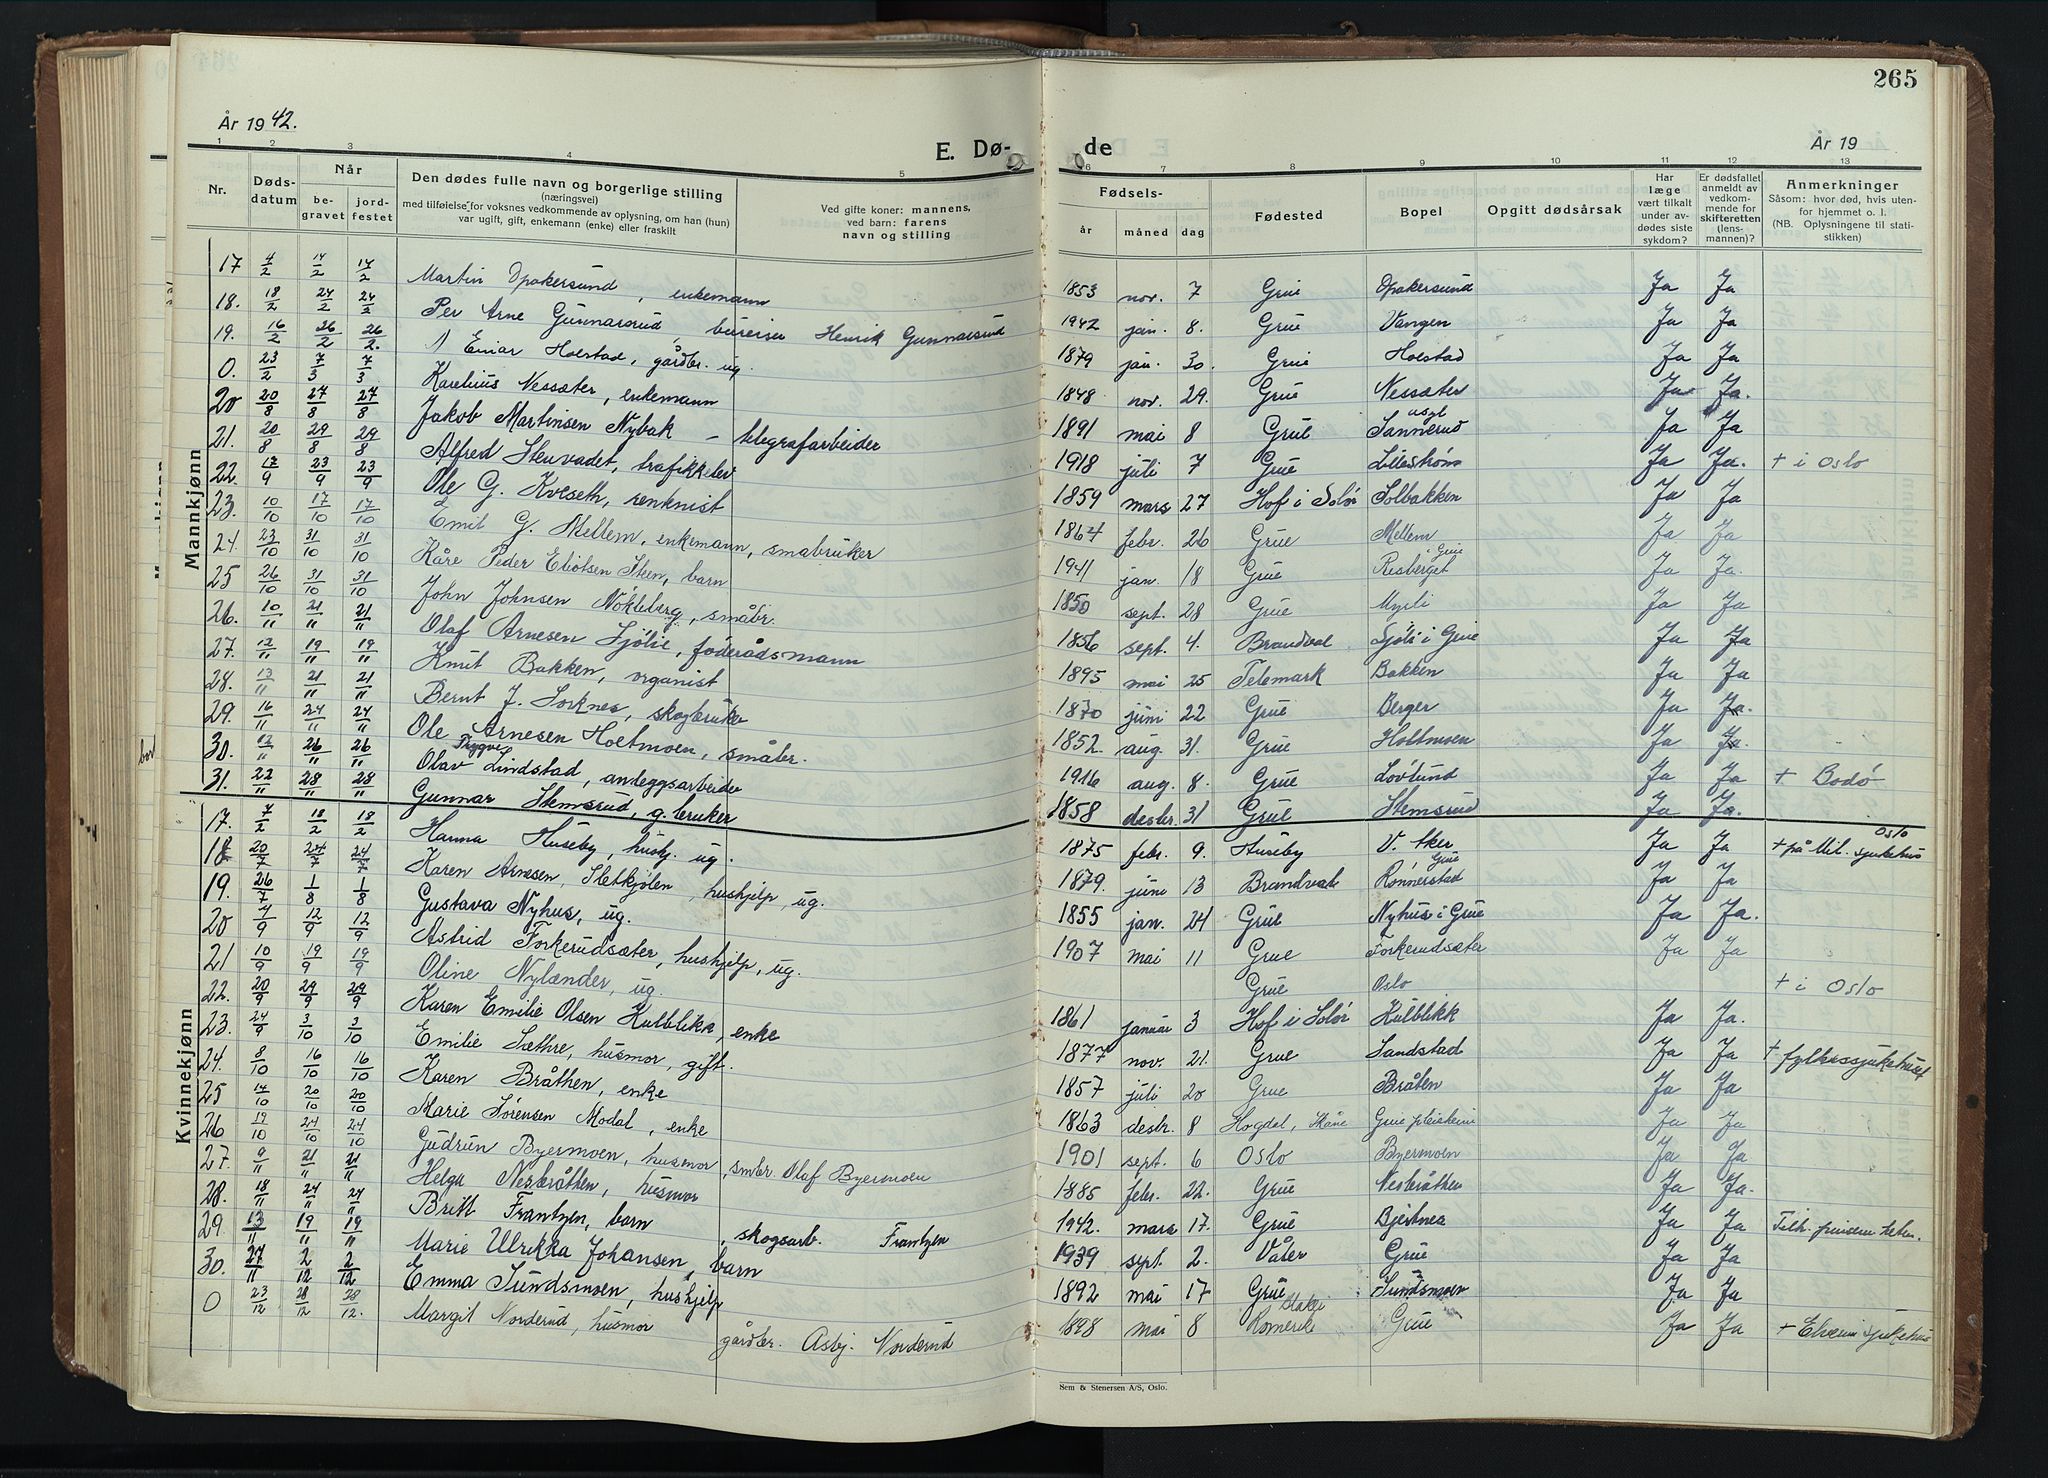 265
År 1942.
E. Dø-
de
År 19
1 2 3 4 5 6 7 8 9 10 11 12 13
Nr.
Dødsdatum
Når
begravet
jordfestet
Den dødes fulle navn og borgerlige stilling
(næringsvei)
med tilføielse for voksnes vedkommende av oplysning, om han (hun)
var ugift, gift, enkemann (enke) eller fraskilt
Ved gifte koner: mannens,
ved barn: farens
navn og stilling
Fødsels-
år måned dag
Fødested
Bopel
Opgitt dødsårsak
Har læge vært tilkalt under avdødes siste sykdom?
Er dødsfallet anmeldt av vedkommende for skifteretten (lensmannen)?
Anmerkninger
Såsom: hvor død, hvis utenfor hjemmet o. l.
(NB. Oplysningene til statistikken)
Mannkjønn
17 4/2 14/2 14/2 Martin Opakersund, enkemann 1853 nov. 7 Grue Opakersund Ja Ja
18. 18/2 24/2 24/2 Per Arne Gunnarsrud, bureiser Henrik Gunnarsrud 1942 jan. 8. Grue Vangen Ja Ja
19. 16/2 26/2 26/2. Einar Holstad, gårdbr. ug. 1879 jan. 30. Grue Holstad Ja Ja
0. 23/2 7/3 7/3 Karelius Nessæter, enkemann 1848 nov. 29. Grue Nessæter Ja Ja.
20 20/8 27/8 27/8 Jakob Martinsen Nybak – telegrafarbeider 1891 mai 8 Grue Sannerud Ja Ja
21. 20/8 29/8 29/8 Alfred Stenvadet, trafikkelev 1918 juli 7 Grue Lillestrøm Ja Ja. + i Oslo
22. 17/9 23/9 23/9 Ole G. Kveseth, renknist 1859 mars 27 Hof i Solør Solbakken Ja Ja
23. 10/10 17/10 17/10 Emil G. Mellem, enkemann, småbruker 1864 febr. 26 Grue Mellem Ja Ja
24. 23/10 31/10 31/10 Kåre Peder Eliotsen Steen, barn 1941 jan. 18 Grue Risberget i Grue Ja Ja.
25 26/10 31/10 31/10 John Johnsen Nøkleberg, småbr. 1850 sept. 28 Grue Myrli Ja Ja
26. 10/11 21/11 21/11 Olaf Arnesen Sjølie, føderådsmann 1856 sept. 4. Brandval Sjøli i Grue Ja Ja
27. 12/11 19/11 19/11 Knut Bakken, organist 1895 mai 25 Telemark Bakken Ja Ja
28. 13/11 21/11 21/11 Bernt J. Sorknes, skogbruker 1870 juni 22 Grue Berger Ja Ja.
29. 16/11 24/11 24/11 Ole Arnesen Holtmoen, småbr. 1852. aug. 31. Grue Holtmoen Ja Ja.
30. 17/" 26/" 26/" Olav Trygve Lindstad, anleggsarbeider 1916 aug. 8. Grue Lövlund Ja Ja + Bodö
31. 22/" 28/" 28/" Gunnar Stemsrud, g.bruker 1858 desbr. 31 Grue Stemsrud Ja Ja.
Kvinnekjønn
17. 7/2 18/2 18/2 Hanna Huseby, hushj. ug. 1875 febr. 9. Huseby V. Aker Ja Ja + på Mil. sjukehus Oslo
18 20/7 24/7 24/7 Karen Arnesen, Sletkjølen, hushjelp, ug. 1879. juni 13 Brandval Rönnerstad Grue Ja Ja
19. 26/7 1/8 1/8 Gustava Nyhus, ug. 1855 jan. 24 Grue Nyhus i Grue Ja Ja.
20 4/9 12/9 12/9 Astrid Forkerudsæter, hushjelp, ug. 1907 mai 11 Grue Forkerudsæter Ja Ja
21 10/9 19/9 19/9 Oline Nylænder, ug. Grue Oslo + i Oslo
22. 20/9 29/9 29/9 Karen Emilie Olsen Kulblikk, enke 1861 januar 3 Hof i Solør Kulblikk Ja Ja.
23. 24/9 3/10 3/10 Emilie Sæthre, husmor, gift. 1877 nov. 21. Grue Sandstad Ja Ja + fylkessjukehuset
24. 8/10 16/10 16/10 Karen Bråthen, enke 1857 juli 20 Grue Bråten Ja Ja
25 14/10 20/10 20/10 Marie Sørensen Modal, enke 1863 desbr. 8 Hogdal, Skåne Grue pleieheim Ja Ja
26 19/10 24/10 24/10 Gudrun Byermoen, husmor, småbr. Olaf Byermoen 1901 sept. 6 Oslo Byermoen Ja Ja
27. 9/" 21/" 21/" Helga Nesbråthen, husmor 1885 febr. 22. Grue Nesbråthen Ja Ja.
28. 18/11 24/" 24/" Britt Frantzen, barn, skogsarb. Frantzen 1942. mars 17. Grue Bjertnes Ja Ja
29. 13/11 19/11 19/11 Marie Ulrikka Johansen, barn 1939 sept. 2. Våler Grue Ja Ja
30. 27/11 2/12 2/12 Emma Sundsmoen, hushjelp 1892 mai 17 Grue Sundsmoen Ja Ja
0 23/12 28/12 28/12. Margit Norderud, husmor gårdbr. Asbj. Norderud 1898 mai 8 Romerike Grue Ja Ja + Elverum sjukehus
Sem & Stenersen A/S, Oslo.